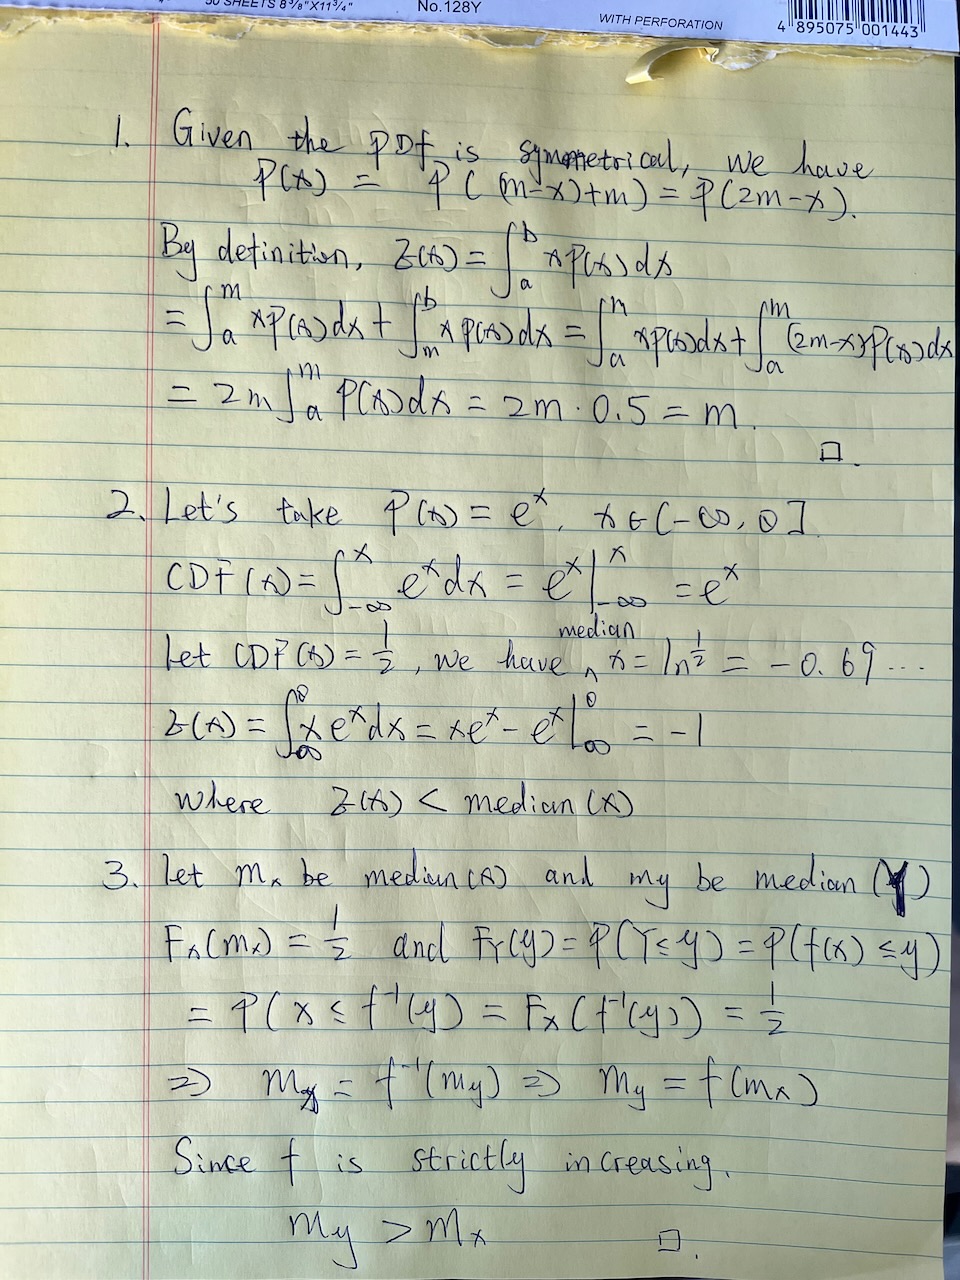 50 SHEETS 8 3/8"X11 3/4" No.128Y WITH PERFORATION 4 895075 001443
1. Given the PDf is symmetrical, we have
P(x) = P((m-x)+m) = P(2m-x).
By definition, E(x) = ∫_a^b xP(x)dx
= ∫_a^m xP(x)dx + ∫_m^b xP(x)dx = ∫_a^m xP(x)dx + ∫_a^m (2m-x)P(x)dx
= 2m ∫_a^m P(x)dx = 2m · 0.5 = m.
□.
2. Let's take P(x) = e^x, x∈(-∞, 0]
CDF(x) = ∫_{-∞}^x e^x dx = e^x |_{-∞}^x = e^x
Let CDF(x) = 1/2, we have median x = ln 1/2 = -0.69...
E(x) = ∫_∞^0 x e^x dx = xe^x - e^x |_∞^0 = -1
where E(x) < median (x)
3. let m_x be median(x) and my be median (Y)
F_x(m_x) = 1/2 and F_Y(y) = P(Y≤y) = P(f(x) ≤y)
= P(x ≤ f^{-1}(y) = F_x(f^{-1}(y)) = 1/2
=> m_x = f^{-1}(my) => my = f(m_x)
Since f is strictly increasing.
my > m_x □.